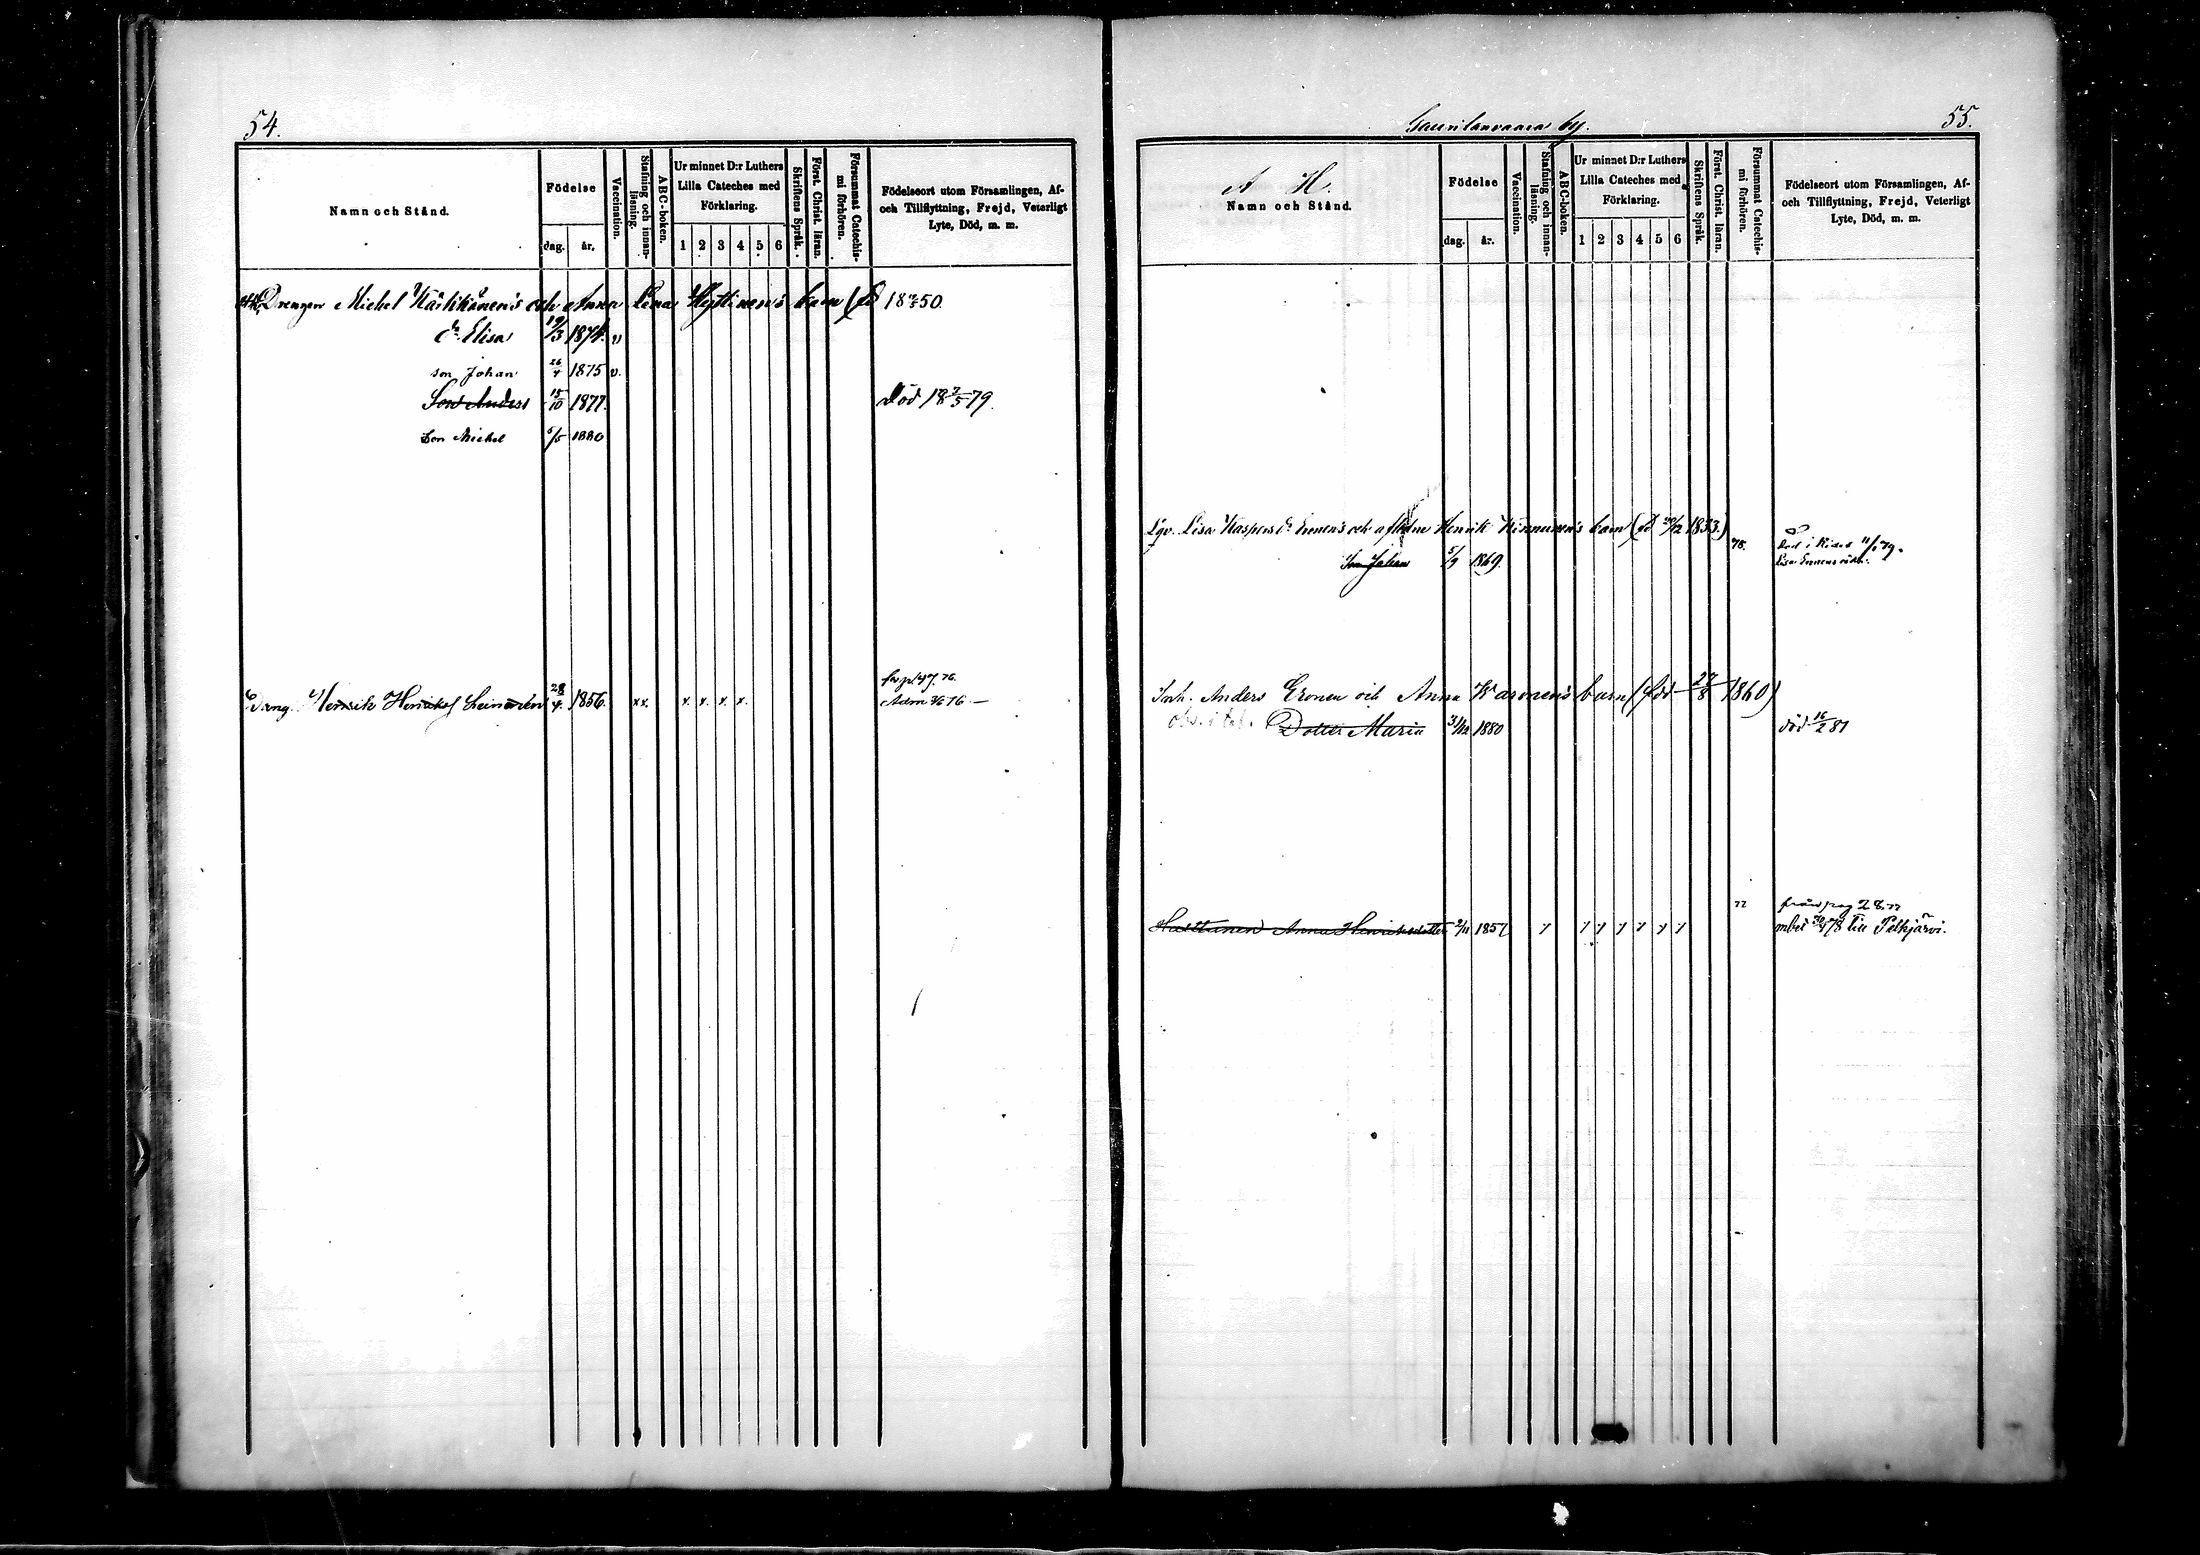 54.
Namn och Stånd.
Födelse
dag. år.
Vaccination.
Stafning och innan-
läsning.
ABC-boken.
Ur minnet D:r Luthers
Lilla Cateches med
Förklaring.
1 2 3 4 5 6
Skriftens Språk.
Först. Christ. läran.
Försummat Catechis-
mi förhören.
Födelseort utom Församlingen, Af-
och Tillflyttning, Frejd, Veterligt
Lyte, Död, m. m.
Drengen Michel och Anna Lena Hyttinen's barn (fd 18 50.
dr. Elisa 19/3 1874. v
son Johan 26/4 1875 v.
Son Anders 15/10 1877. Död 18 7/5 79.
Son Michel 5/5 1880
47. 76.
Henrik Leinonen 28/4. 1856. xx. x. x. x. x. 76 —
55.
by.
A H.
Namn och Stånd.
Födelse
dag. år.
Vaccination.
Stafning och innan-
läsning.
ABC-boken.
Ur minnet D:r Luthers
Lilla Cateches med
Förklaring.
1 2 3 4 5 6
Skriftens Språk.
Först. Christ. läran.
Försummat Catechis-
mi förhören.
Födelseort utom Församlingen, Af-
och Tillflyttning, Frejd, Veterligt
Lyte, Död, m. m.
Lisa Kaspersdr Ennen's och aflidne Henrik Kinnunen's barn (fd 20/12 1833.)
Son Johan 5/9 1869. 78.
Inh. Anders Eronen och Anna Waronen's barn (född 27/8 1860)
Dotter Maria 31/12 1880 död 16/2 81
77 från pag 28. 77
Hutturen Anna Henriksdotter 2/11 1857 till Pelkjärvi.